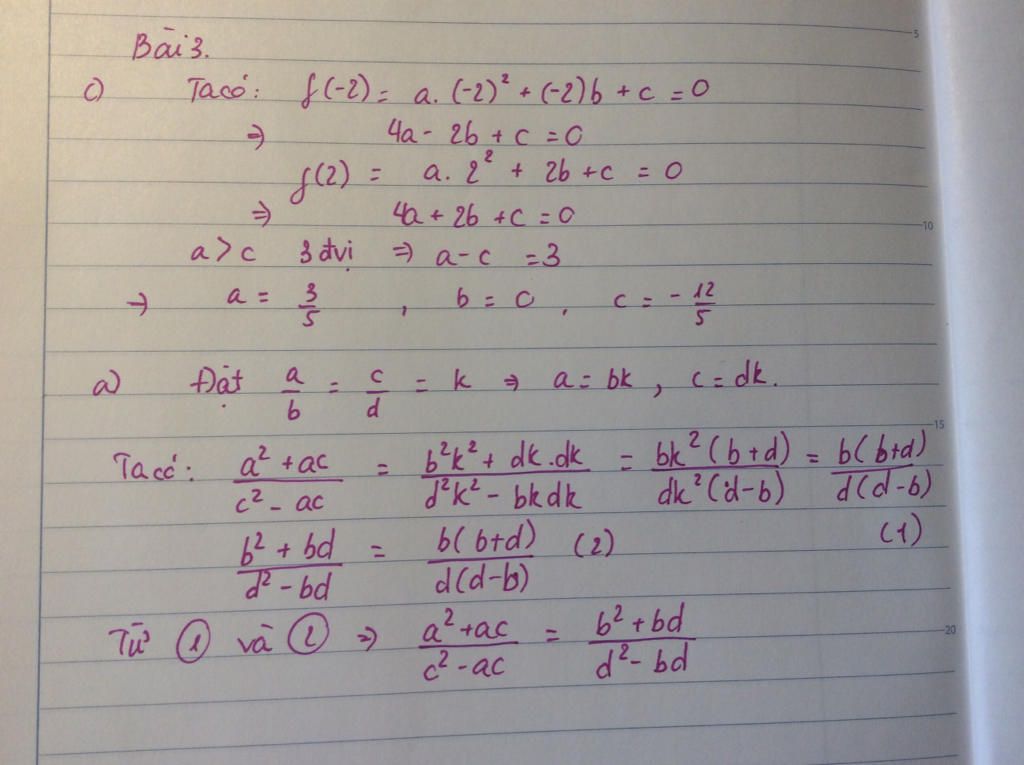 Bài 3.
c) Ta có: f(-2) = a. (-2)² + (-2)b + c = 0
⇒ 4a - 2b + c = 0
f(2) = a. 2² + 2b + c = 0
⇒ 4a + 2b + c = 0
a > c 3 đvị ⇒ a - c = 3
→ a = 3/5 , b = 0 , c = - 12/5
a) Đặt a/b = c/d = k ⇒ a = bk , c = dk.
Ta có: (a² + ac)/(c² - ac) = (b²k² + dk.dk)/(d²k² - bkdk) = bk²(b+d)/dk²(d-b) = b(b+d)/d(d-b)
(b² + bd)/(d² - bd) = b(b+d)/d(d-b) (2) (1)
Từ ① và ② ⇒ (a² + ac)/(c² - ac) = (b² + bd)/(d² - bd)
5
10
15
20